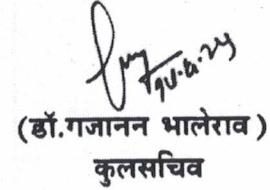 (डॉ.गजानन भालेराव)
कुलसचिव